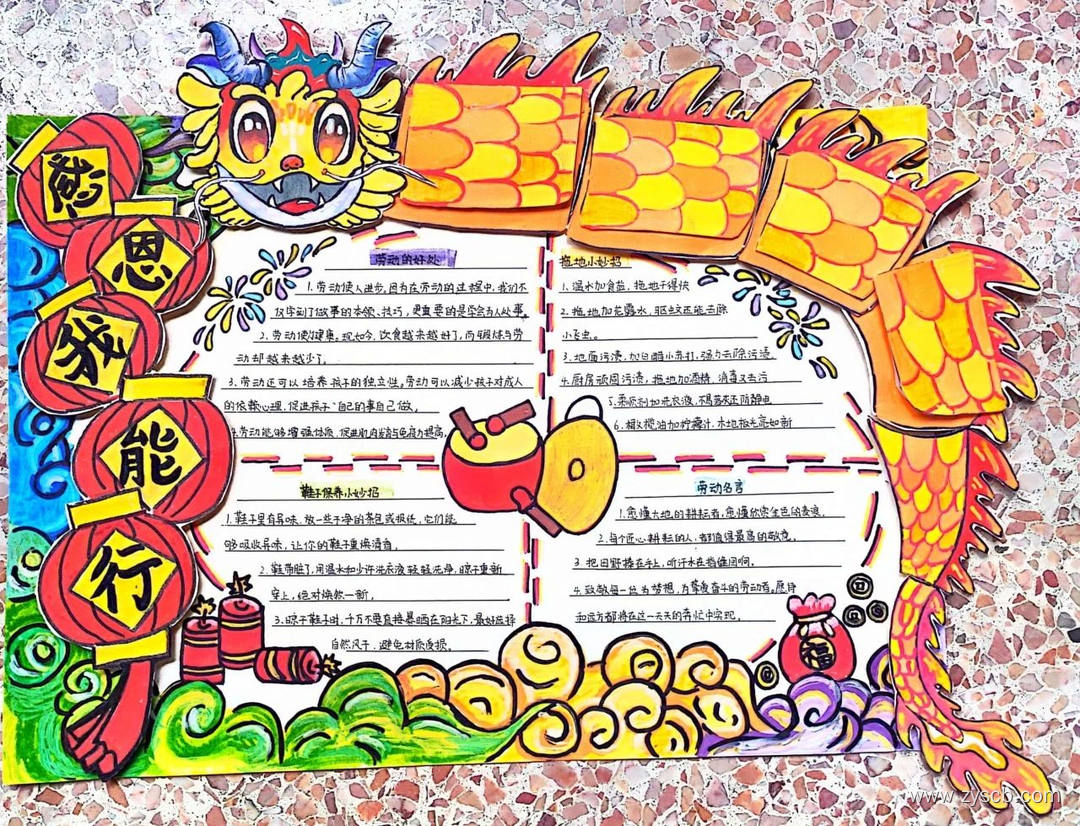 感
恩
我
能
行
劳动的好处
1. 劳动使人进步,因为在劳动的过程中,我们不
仅学到了做事的本领、技巧,更重要的是学会为人处事。
2. 劳动使健康。现如今,饮食越来越好了,而锻炼与劳
动却越来越少了。
3. 劳动还可以培养孩子的独立性。劳动可以减少孩子对成人
的依赖心理,促进孩子"自己的事自己做。
4. 劳动能够增强体质,促进肌肉发育与免疫力提高。
拖地小妙招
1. 温水加食盐,拖地干得快
2. 拖地加花露水,驱蚊还能去除
小飞虫。
3. 地面污渍,加白醋小苏打,强力去除污渍
4. 厨房顽固污渍,拖地加酒精,消毒又去污
5. 柔顺剂加洗衣液,不易落灰还防静电
6. 橄榄油加柠檬汁,木地板光亮如新
鞋子保养小妙招
1. 鞋子里有异味,放一些干净的茶包或报纸,它们能
够吸收异味,让你的鞋子重焕清香。
2. 鞋带脏了,用温水和少许洗衣液轻轻洗净,晾干重新
穿上,绝对焕然一新。
3. 晾干鞋子时,千万不要直接暴晒在阳光下,最好选择
自然风干,避免材质受损。
劳动名言
1. 您懂大地的耕耘者,您懂欣赏金色的麦浪。
2. 每个匠心耕耘的人,都值得最高的敬意。
3. 把田野捧在手上,听汗水在指缝回响。
4. 致敬每一位为梦想,为挚爱奋斗的劳动者。愿诗
和远方都将在这一天天的奔忙中实现。
福
www.zyscb.com